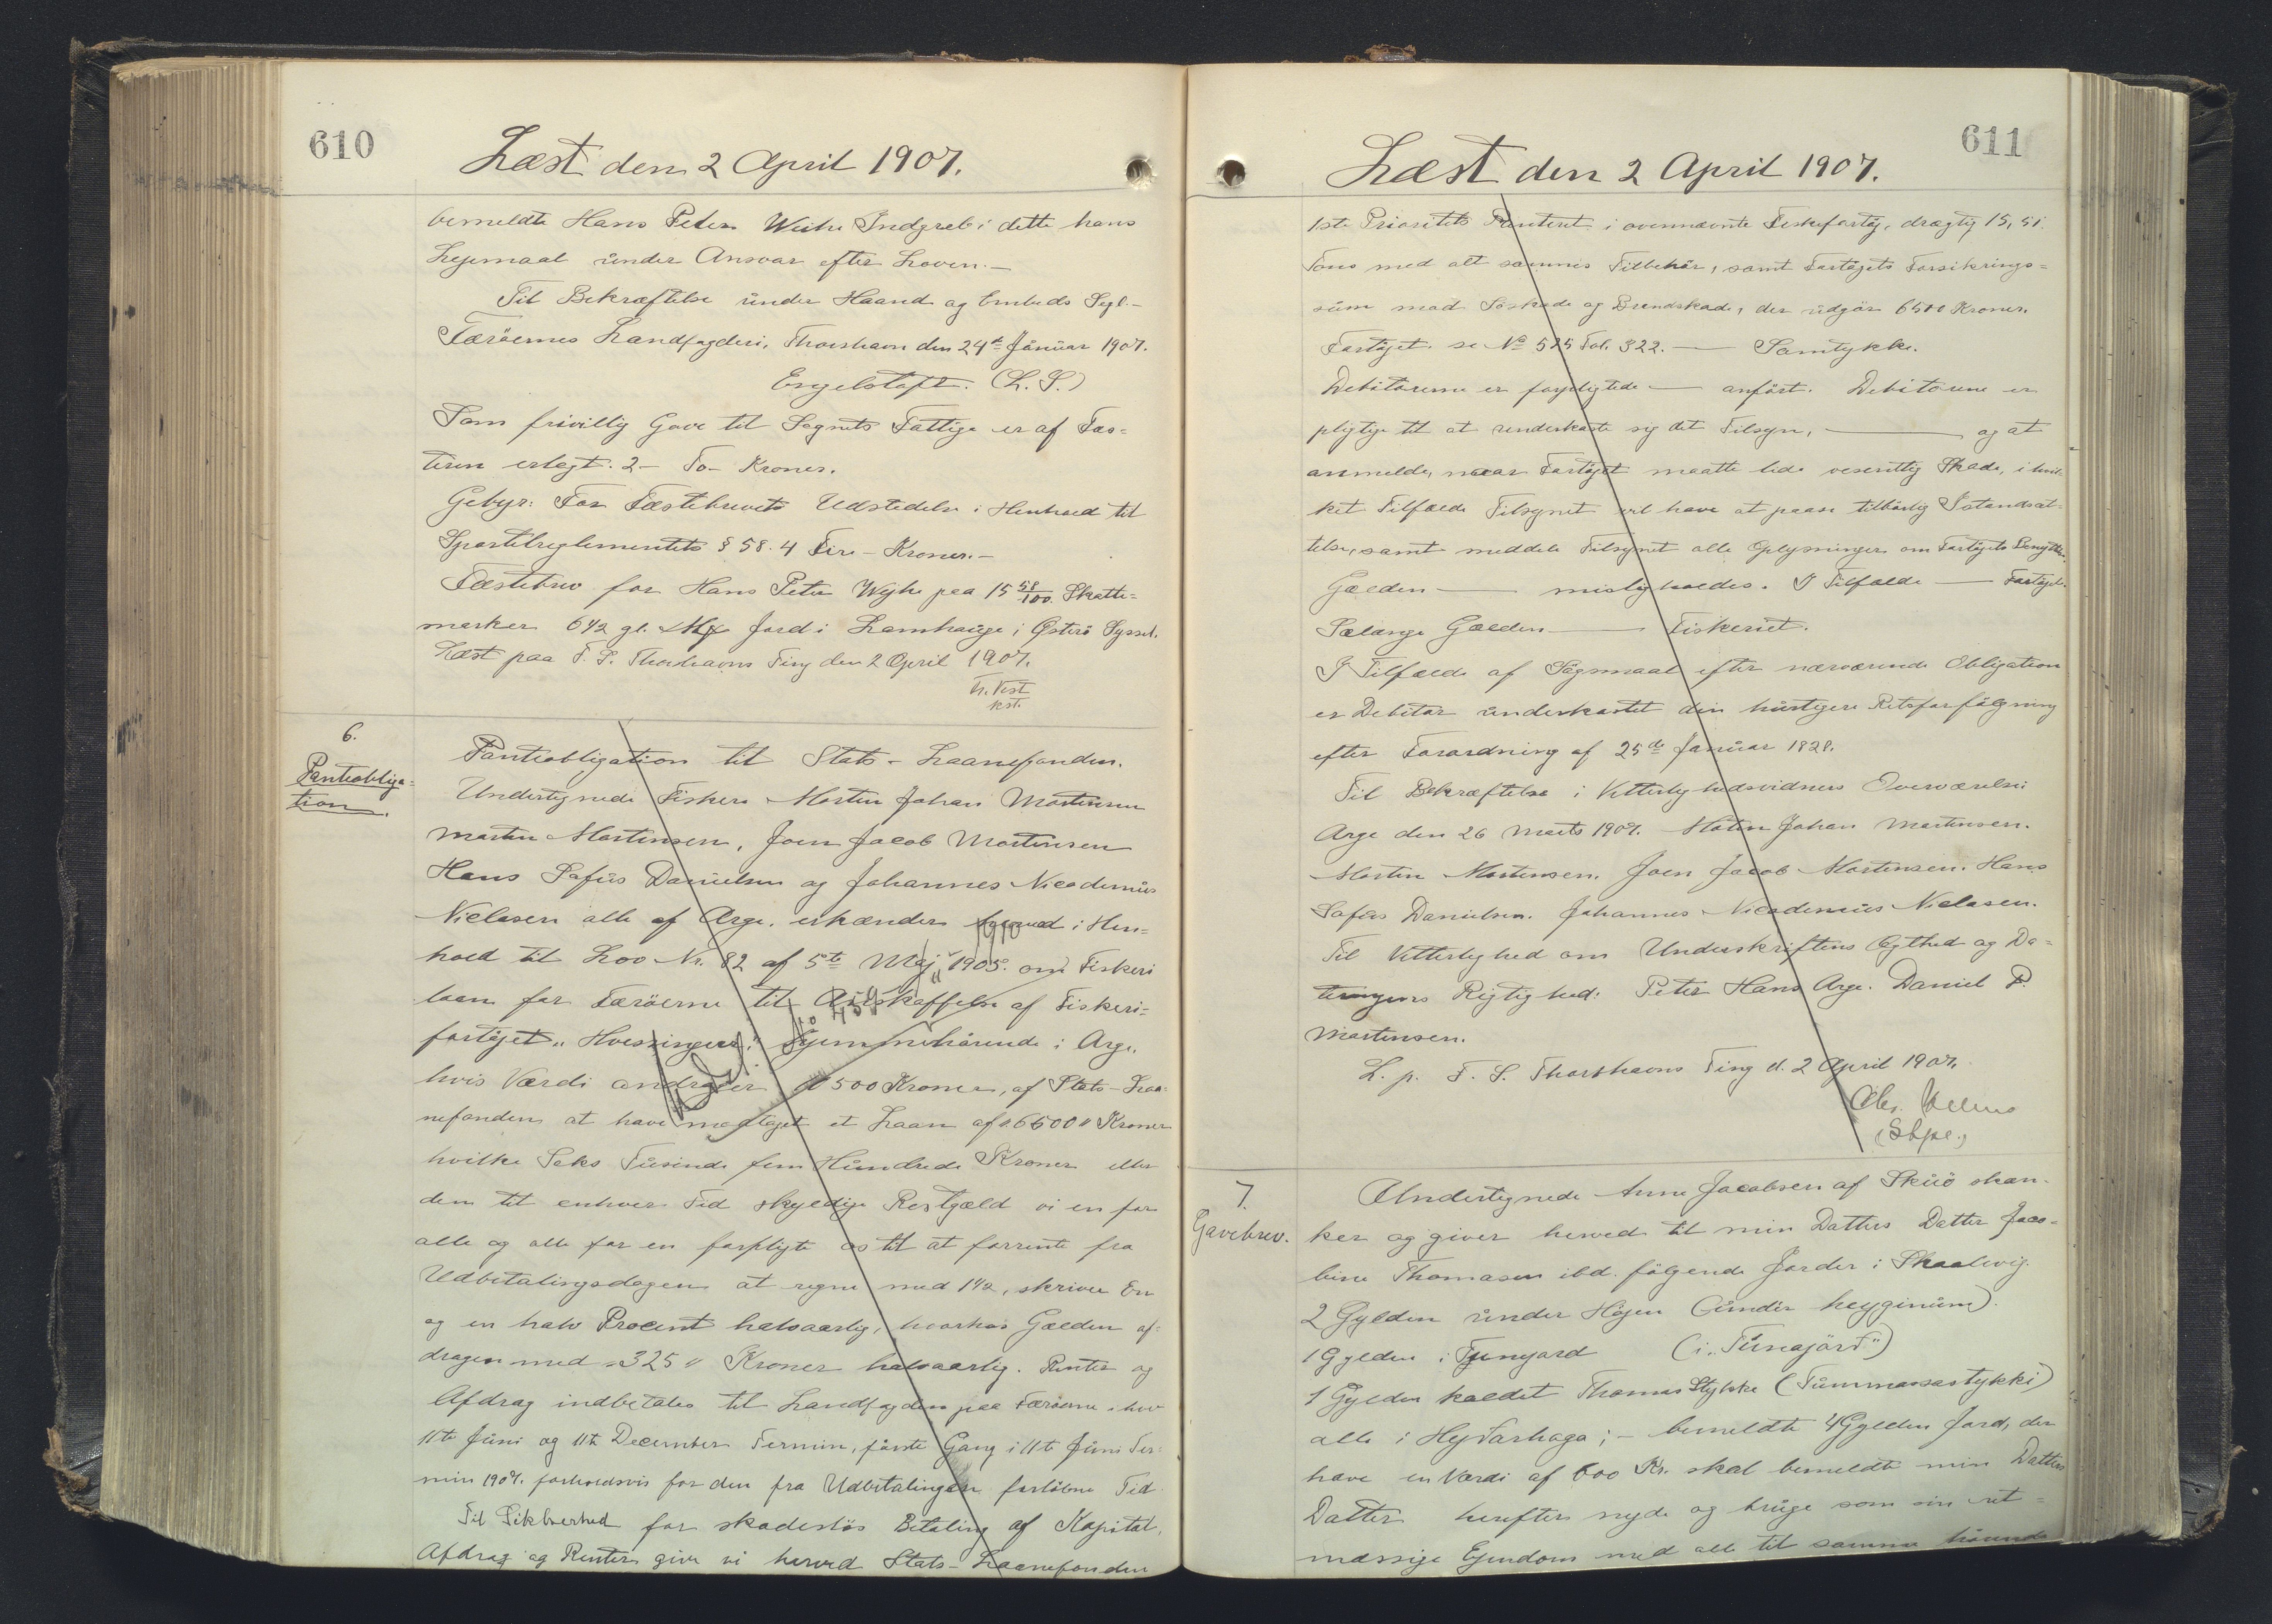 610
Læst den 2 April 1907.
bemeldte Hans Peter Weihe Indgreb i dette hans
Lejemaal under Ansvar efter Loven. —
Til Bekræftelse under Haand og Embeds Segl. —
Færöernes Landfogderi, Thorshavn den 24de Januar 1907.
Engelstoft. (L. S.)
Som frivillig Gave til Sognets Fattige er af Fæs=
teren erlagt. 2 — To — Kroner.
Gebyr: For Fæstebrevets Udstedelse i Henhold til
Sportelreglementets § 58. 4 Fire — Kroner. —
Fæstebrev for Hans Peter Wejhe paa 15 58/100 Skatte=
marker 6 1/2 gl. Mk Jord i Lamhauge i Østerö Syssel.
Læst paa F. S. Thorshavns Ting den 2 April 1907.
Tr. Vest
kst.
6.
Panteobliga=
tion.
Panteobligation til Stats-Laanefonden.
Undertegnede Fiskere Morten Johan Mortensen
Morten Mortensen, Joen Jacob Mortensen
Hans Sofus Danielsen og Johannes Nicodemus
Nielasen alle af Arge, erkender herved i Hen=
hold til Lov Nr. 82 af 5te Maj 1905. om Fiskeri
laan for Færöerne til Anskaffelse af Fiskeri=
fartöjet "Hvessingur" hjemmehörende i Arge,
hvis Værdi andrager 500 Kroner, af Stats-Laa=
nefonden at have modtaget et Laan af "6500" Kroner
hvilke Seks Tusinde fem Hundrede Kroner eller
den til enhver Tid skyldige Restgæld vi en for
alle og alle for en forpligte os til at forrente fra
Udbetalingsdagen at regne med 1 1/2, skriver En
og en halv Procent halvaarlig, hvorhos Gælden af=
drages med "325" Kroner halvaarlig. Renter og
Afdrag indbetales til Landfogden paa Færöerne i hver
11te Juni og 11te December Termin, förste Gang i 11te Juni Ter=
min 1907. forholdsvis for den fra Udbetalingen forlöbne Tid
Til Sikkerhed for skadeslös Betaling af Kapital,
Afdrag og Renter give vi herved Stats-Laanefonden
611
Læst den 2 April 1907.
1ste Prioritets Panteret i ovennævnte Fiskefartöj, drægtig 15,51
Tons med alt sammes Tilbehör, samt Fartöjets Forsikrings=
sum mod Söskade og Brandskade, der udgör 6500 Kroner.
Fartöjet se No 525 Fol. 322. — Samtykke.
Debitorerne er forpligtede — anfört. Debitorerne er
pligtige til at underkaste sig det Tilsyn, — og at
anmelde, naar Fartöjet maatte lide væsentlig Skade, i hvil=
ket Tilfælde Tilsynet vil have at paase tilbörlig Istandsæt=
telse, samt meddele Tilsynet alle Oplysninger om Fartöjets Benyttelse.
Gælden — misligholdes. I Tilfælde — Fartöjet.
Sælange Gælden — Fiskeriet.
I Tilfælde af Sögsmaal efter nærværende Obligation
er Debitor underkastet den hurtigere Retsforfölgning
efter Forordning af 25de Januar 1828.
Til Bekræftelse i Vitterlighedsvidners Overværelse:
Arge den 26 Marts 1907. Morten Johan Mortensen.
Morten Mortensen. Joen Jacob Mortensen. Hans
Sofus Danielsen. Johannes Nicodemus Nielasen.
Til Vitterlighed om Underskriftens Ægthed og Da=
teringens Rigtighed: Peter Hans Arge. Daniel P.
Mortensen.
L. p. F. S. Thorshavns Ting d. 2 April 1907.
(Sbpl.)
7.
Gavebrev.
Undertegnede Anne Jacobsen af Skuö skæn=
ker og giver herved til min Datters Datter Jaco=
bine Thomasen ibd. fölgende Jorder i Skaalevig.
2 Gylden under Höjen (undir heyginum)
1 Gylden i Tunegard (i "Túnagörð")
1 Gylden kaldet Thomas Stykke (Tummasastykki)
alle i Heyðarhaga; — bemeldte 4 Gylden Jord, der
have en Værdi af 600 Kr. skal bemeldte min Datters
Datter herefter nyde og bruge som sin ret=
mæssige Ejendom med alt til samme hörende